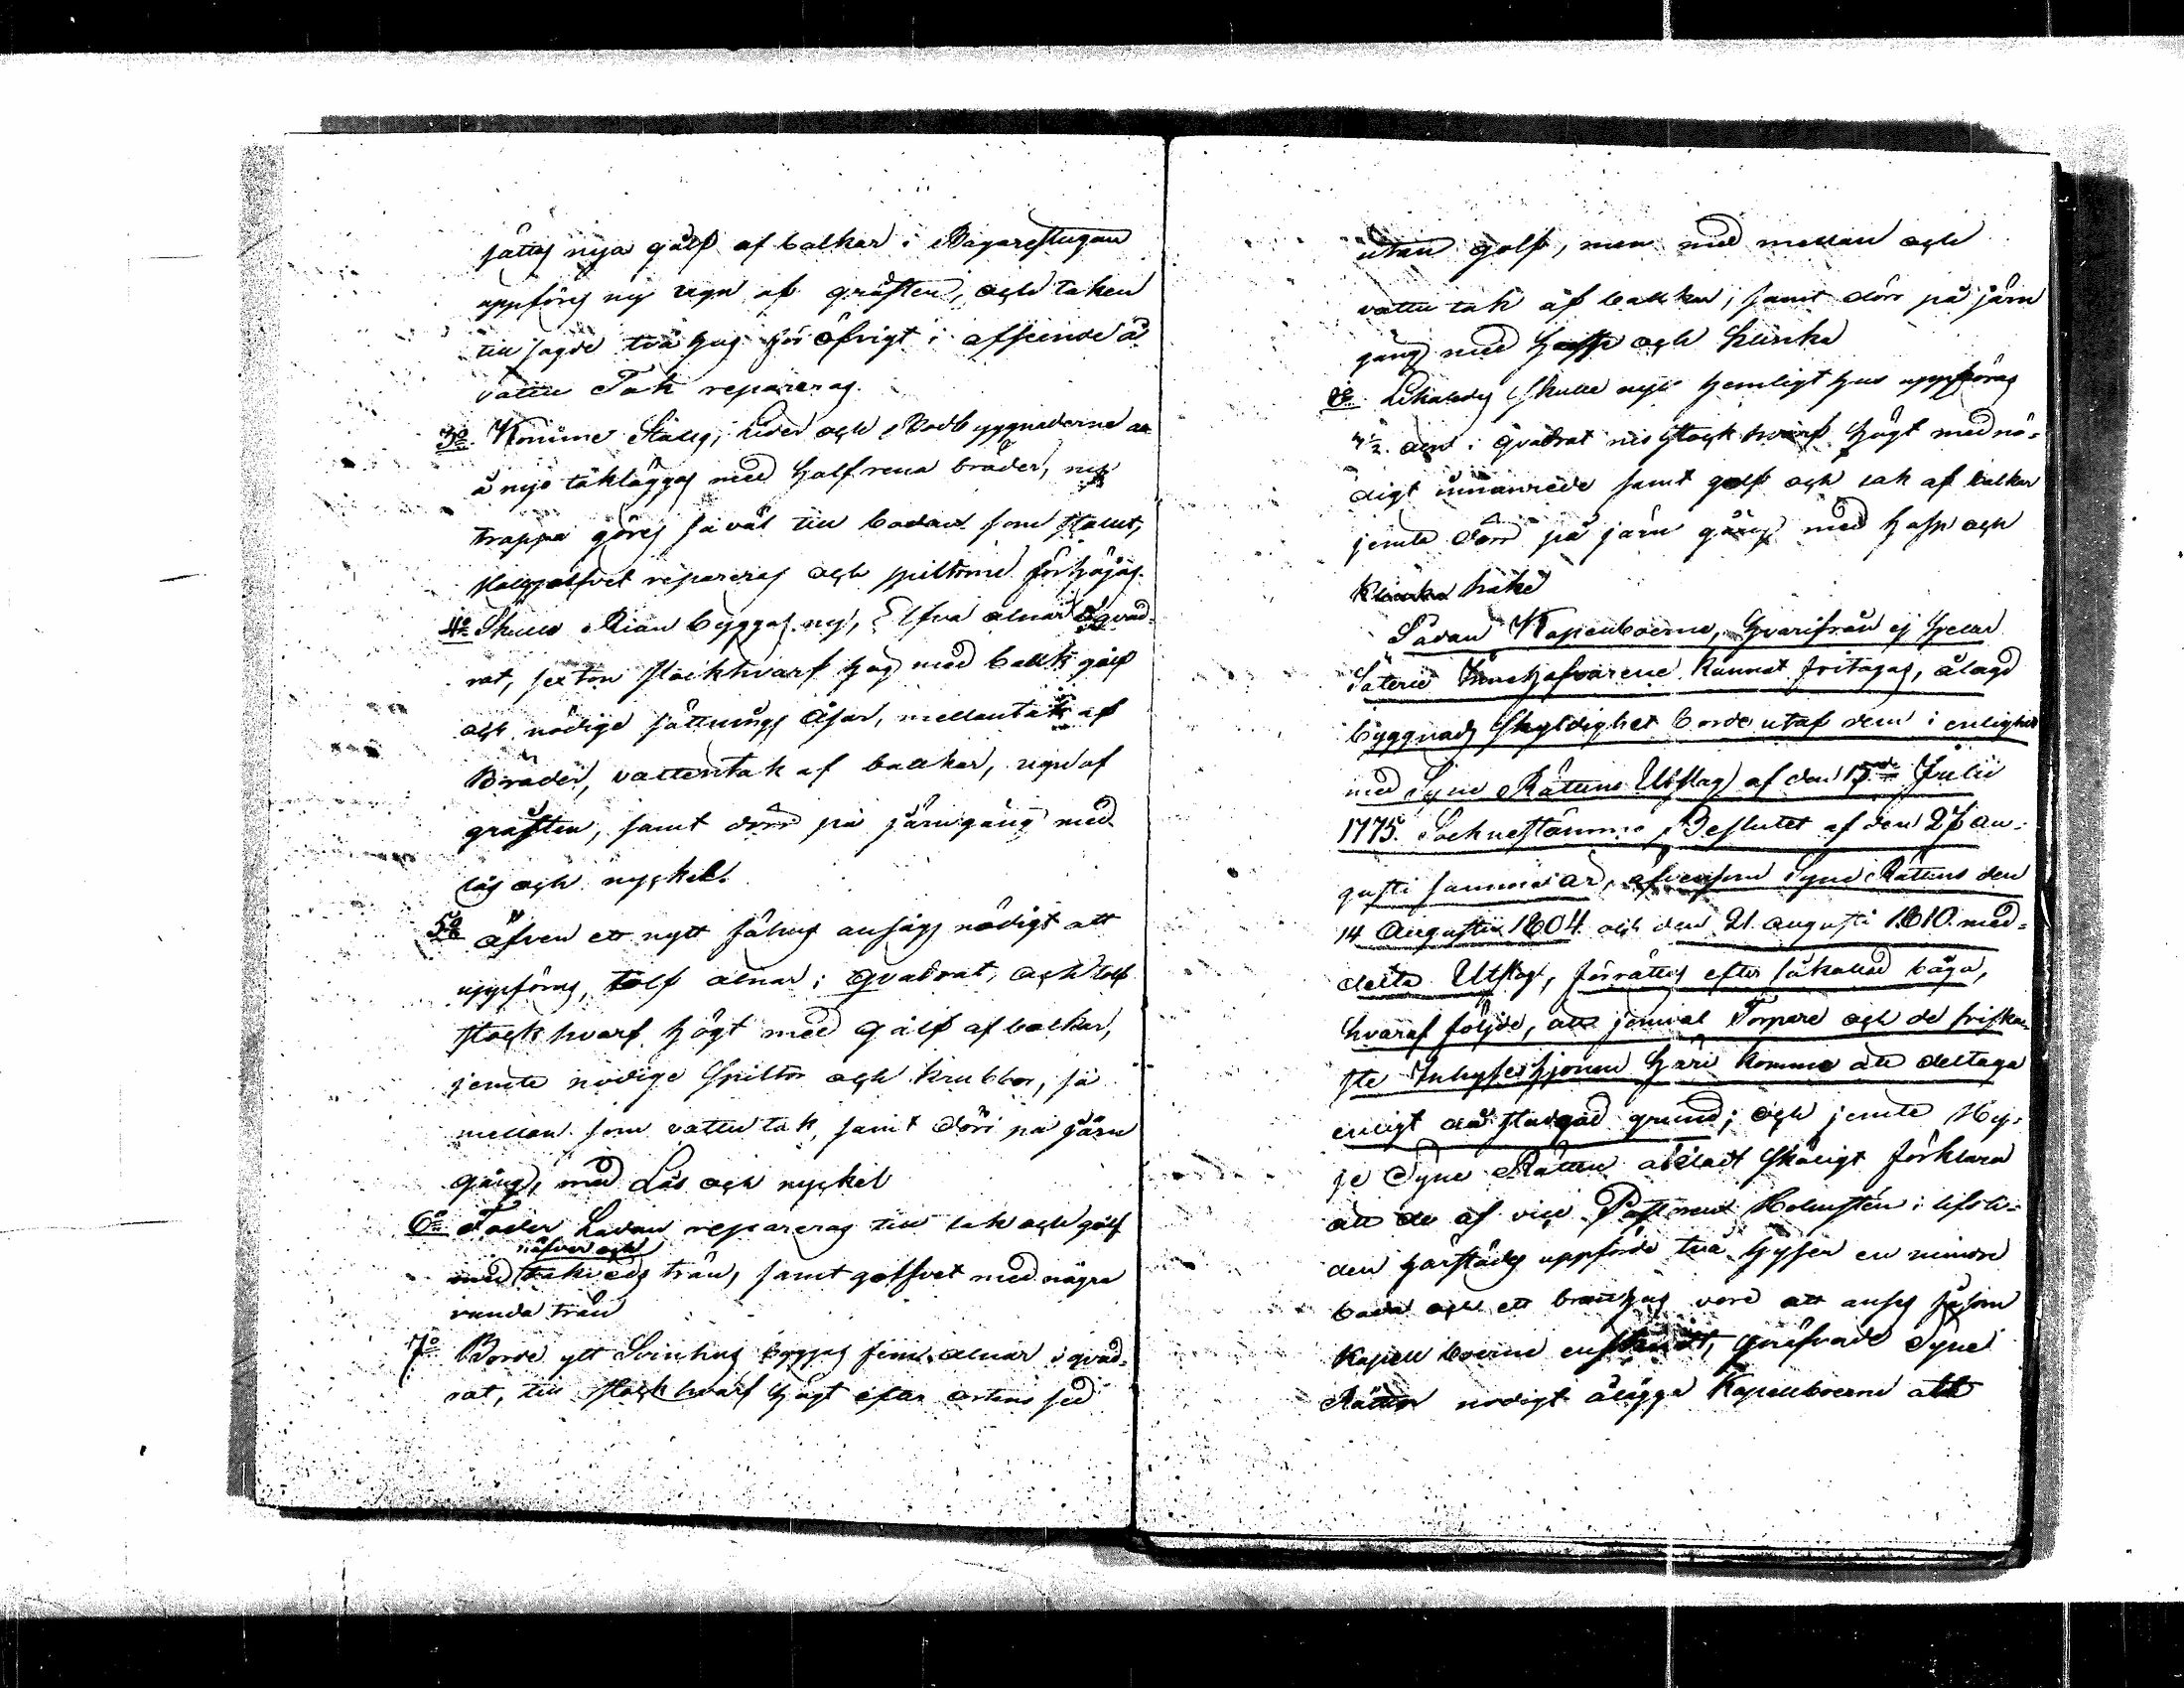 sättes nya gålf af balkar i Bagarestugan
uppföres ny ugn af gråsten, och taken
till sagde två hus för öfrigt i afseende å
vatten Tak repareras.
3o. Komme Stalls, Lider och Bodbyggnaderne
å nyo takläggas med halfrena bräder, ny
trappa göres så väl till bodan som stallet,
stallgolfvet repareras och spiltorne förhöjas.
4o Skulle Rian byggas ny, Elfva alnar i qvad-
rat, sexton stockhvarf hög med balk gålf
och nödige sättnings Åsar, mellantak af
Bräder, vattentak af balkar, ugn af
gråsten, samt dörr på järngång med
lås och nyckel.
5o Äfven ett nytt fähus ansågs nödigt att
uppföras, tolf alnar i qvadrat, och tolf
stockhvarf högt med gålf af balkar,
jemte nödige Spiltor och krubbor, så
mellan som vattutak, samt dörr på järn
gång, med Lås och nyckel
6o Foder Ladan repareras till tak och gålf
näfver och
med takveds trän, samt golfvet med några
runda trän
7o Borde ytt Svinhus byggas fem alnar i qvad-
rat, till stockhvarf högt efter ortens sed
utan golf, men med mellan och
vattu tak af balkar, samt dörr på järn
gång med haspe och klinka
8o Likaledes skulle nytt hemligt hus uppföras
4 1/2 aln i qvadrat nio stockhvarf högt med nö-
digt innanrede samt golf och tak af balkar
jemte dörr på järn gång med hasp och
klinka hake
Sådan Kapellboerne, hvarifrån ej heller
Säterie Innehafvarene kunnat fritagas, ålagd
byggnads skyldighet borde utaf dem i enlighet
med Syne Rättens Utslag af den 15de Julii
1775. Socknestämmo Beslutet af den 27 Au-
gusti samma år, äfvensom Syne Rättens den
14 Augusti 1804 och den 21 Augusti 1810. med-
delta Utslag, förrättas efter såkallad båga,
hvaraf följde, att jemväl Torpare och de friska-
ste Inhyseshjonen häri komma att deltaga
enligt då stadgad grund; och jemte
Syne Rätten skäligt förklara
att de af vice Pastoren Holmstén i lifsti-
den härstädes uppförde två hyser en mindre
boda och ett brännhus vore att anses såsom
Kapellboerne enskendt, pröfvade Syne
Rätten nödigt ålägga Kapellboerne att